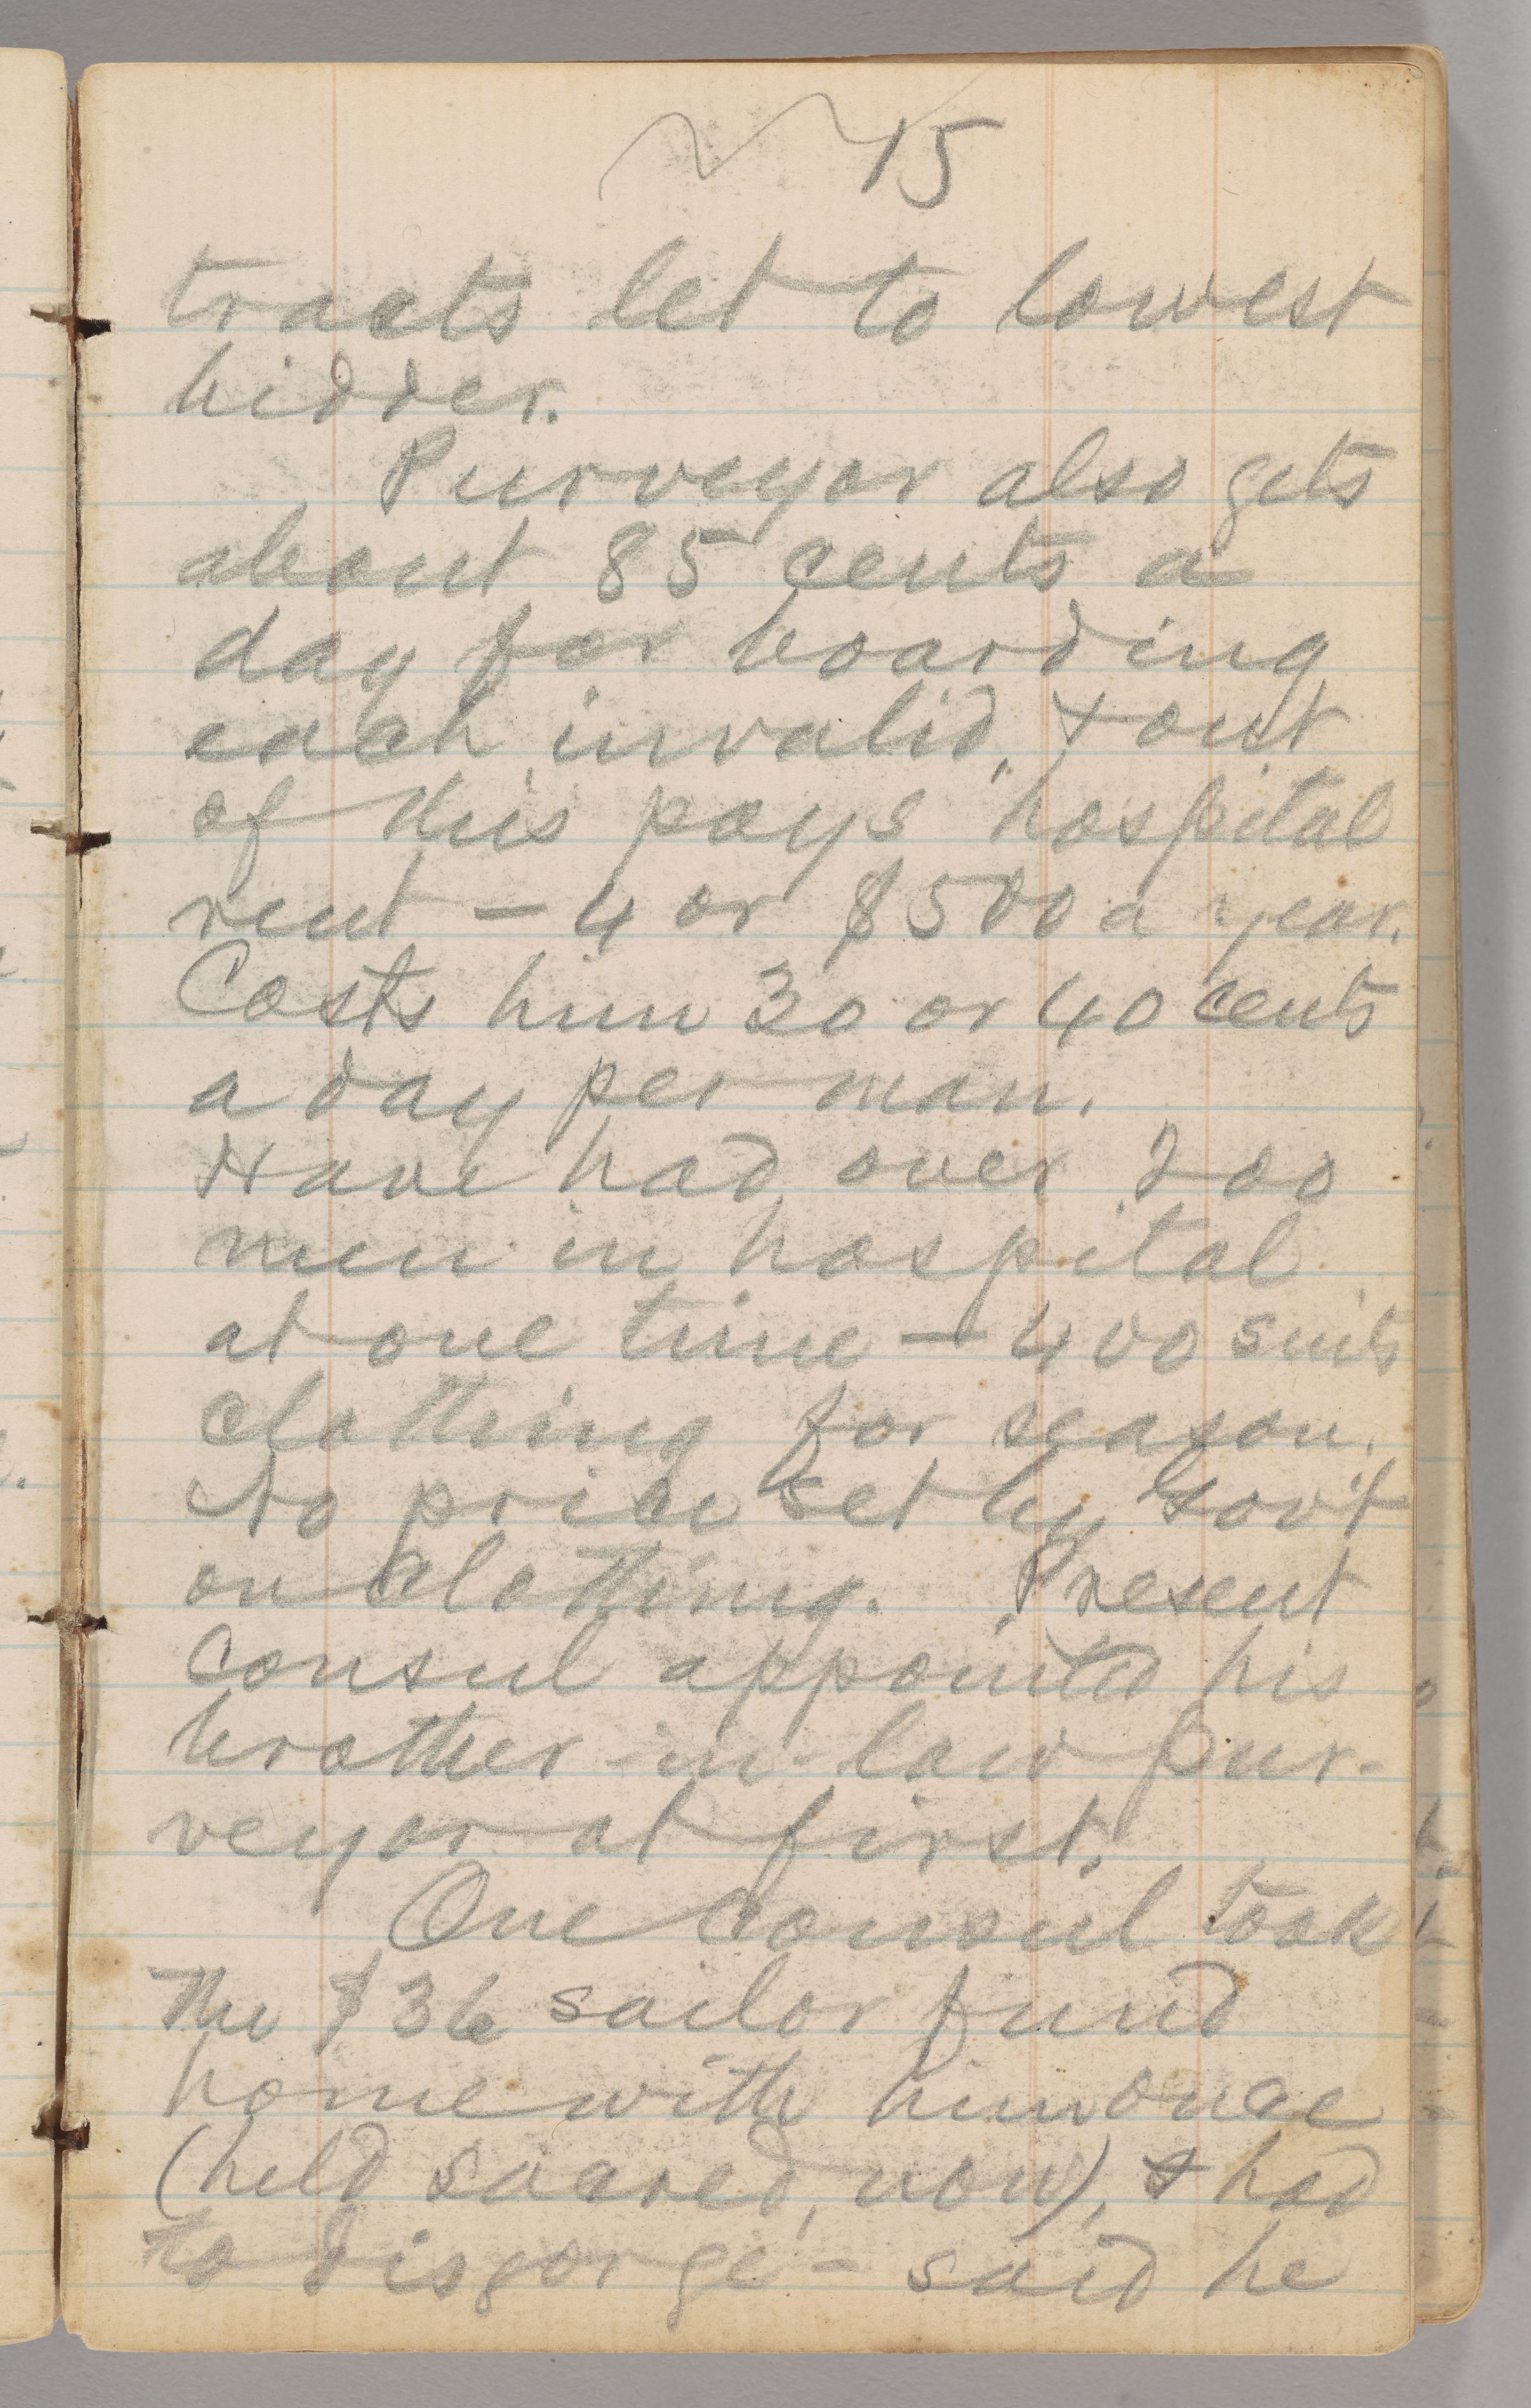 15
tracts let to lowest
bidder.
Purveyor also gets
about 85 cents a
day for boarding
each invalid, & out
of this pays hospital
rent — 4 or $500 a year.
Costs him 30 or 40 cents
a day per man.
Have had over 200
men in hospital
at one time — 400 suits
clothing for season.
No price set by Govt
on clothing. Present
Consul appointed his
brother-in-law Pur-
veyor at first.
One Consul took
the $36 sailor fund
home with him once
(held sacred, now), & had
to disgorge — said he